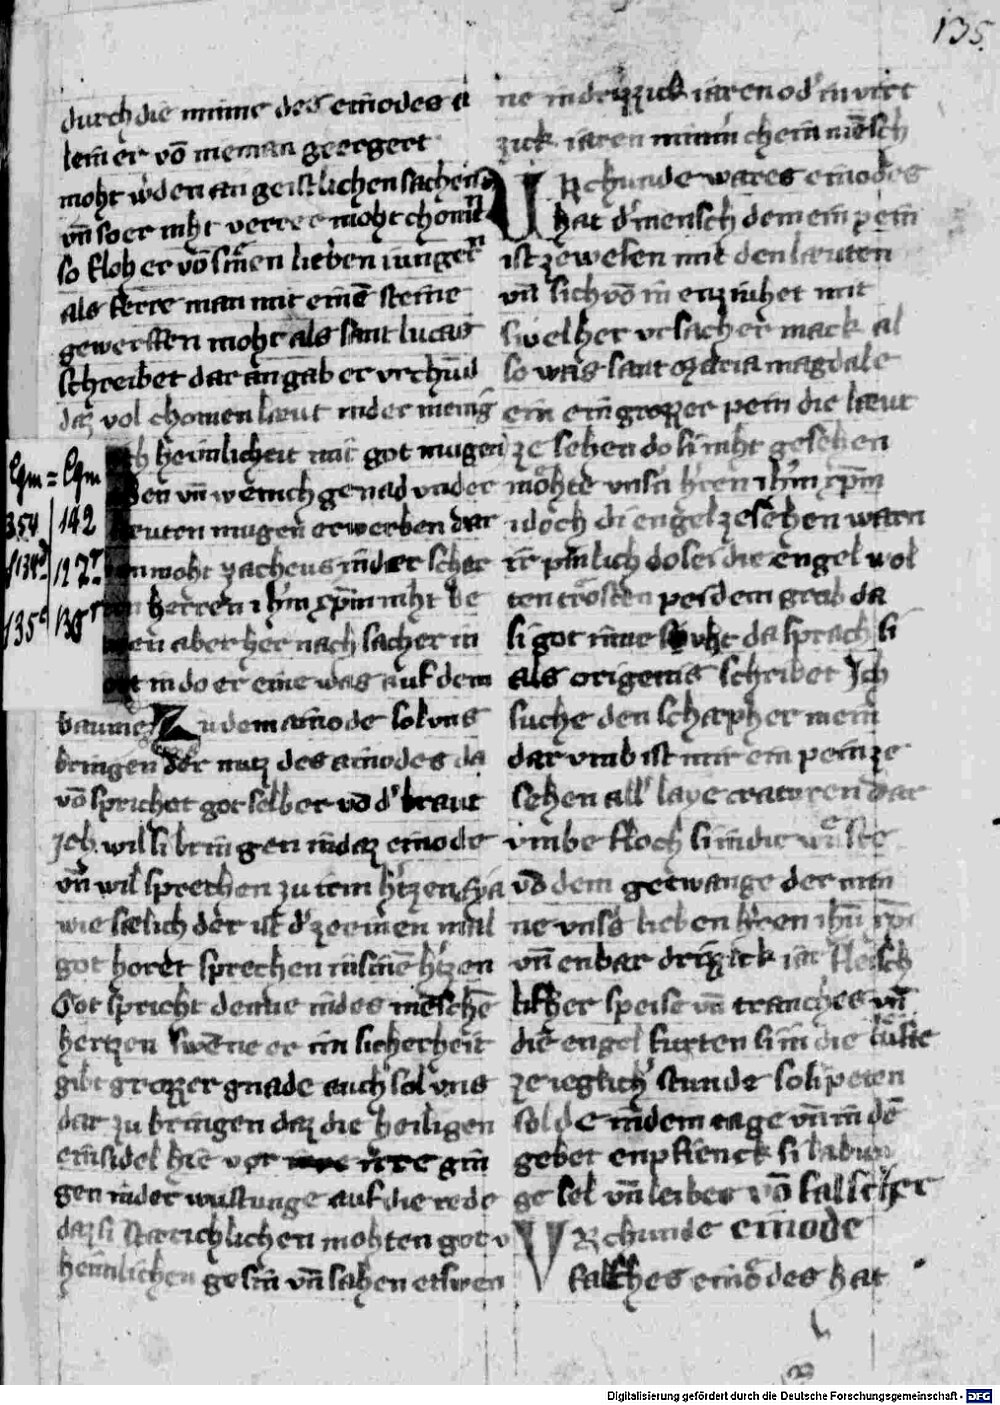 135.
durch die minne des einodes a
lein er vō nieman geergert
moht w̓den an geistlichen sachen
vn̄ so er niht verrer moht chomē
so floh er vō sinen lieben iungerⁿ
als ferre man mit einē steine
gewerffen moht als sant lucas
schreibet dar an gab er vrchūd
daz vol chomen læut in der menig
heimlicheit mit got mugen
en vn̄ wenich genad vnder
leuten mugen erwerben dar
moht zacheus in der schar
herren ih̄m xp̄m niht be
en aber her nach sach er in
in do er eine was auf dem
baume Zu dem ainode sol vns
bringen der nutz des ainodes da
vō sprichet got selber vō d̓ braut
Ich wil si bringen in daz einode
vn̄ wil sprechen zu irem h̓tzen
wie sælich der ist d̓ ze einen mal
got horet sprechen in sinē h̓tzen
Got spricht denne in des mēschē
hertzen swēne er im sicherheit
gibt grozzer gnade auch sol vns
dar zu bringen daz die heiligen
einsidel hie vor irre gin
gen in der wustunge auf die rede
daz si stætichlichen mohten got
heimlichen gesin vn̄ sahen etswen
ne in dreizzick iaren od̓ in virt
zick iaren nimm̓ chein mēsch
VRchunde wares einodes
hat d̓ mensch dem ein pein
ist ze wesen mit den læuten
vn̄ sich vō in enzinhet mit
swelher vrsacher mack al
so was sant Maria magdale
ein ein grozzer pein die læut
ze sehen do si niht gesehen
mohte vnsn̓ h̓ren ih̄m xp̄m
idoch di engel ze sehen warn
ir pinlich do sei die engel wol
ten trosten pei dem grab da
si got inne suht da sprach si
als origenis schribet Ich
suche den schæpher mein
dar vmb ist mir ein pein ze
sehen all̓ laye craturen Dar
vmbe floch si in die wuͤste
vō dem getwange der min
ne vnss̓ lieben h̓ren ih̄u xp̄i
vn̄ enbar drizick iar fleisch
licher speise vn̄ tranches vn̄
die engel furten si in die lufte
ze ieglich̓ stunde so si peten
solde in dem tage vn̄ in dē
gebet enpfienck si labun
ge sel vn̄ leibes Vō falscher
VRchunde einode
falsches einodes hat
Cgm = Cgm
354 142
135ᶜ
Digitalisierung gefördert durch die Deutsche Forschungsgemeinschaft - DFG